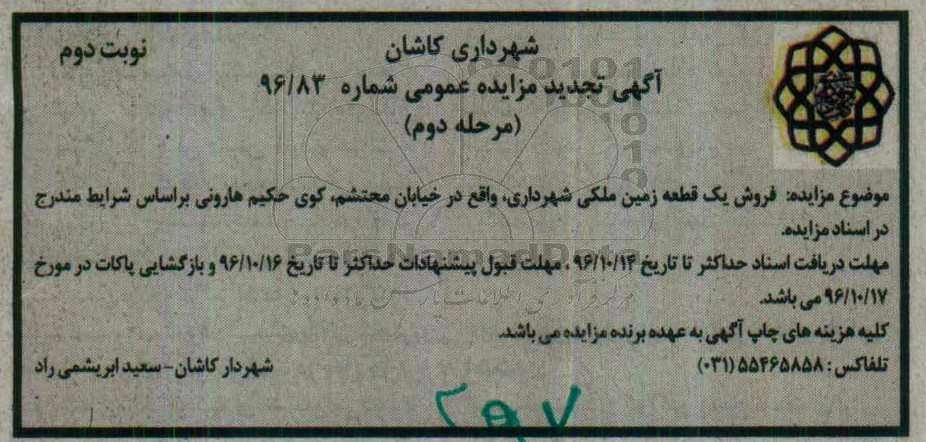 شهرداری کاشان
نوبت دوم
آگهی تجدید مزایده عمومی شماره ۹۶/۸۳
(مرحله دوم)
موضوع مزایده: فروش یک قطعه زمین ملکی شهرداری، واقع در خیابان محتشم، کوی حکیم هارونی براساس شرایط مندرج
در اسناد مزایده.
مهلت دریافت اسناد حداکثر تا تاریخ ۹۶/۱۰/۱۴ ، مهلت قبول پیشنهادات حداکثر تا تاریخ ۹۶/۱۰/۱۶ و بازگشایی پاکات در مورخ
۹۶/۱۰/۱۷ می باشد.
کلیه هزینه های چاپ آگهی به عهده برنده مزایده می باشد.
تلفاکس : ۵۵۴۶۵۸۵۸ (۰۳۱)
شهردار کاشان - سعید ابریشمی راد
ParsNamadData